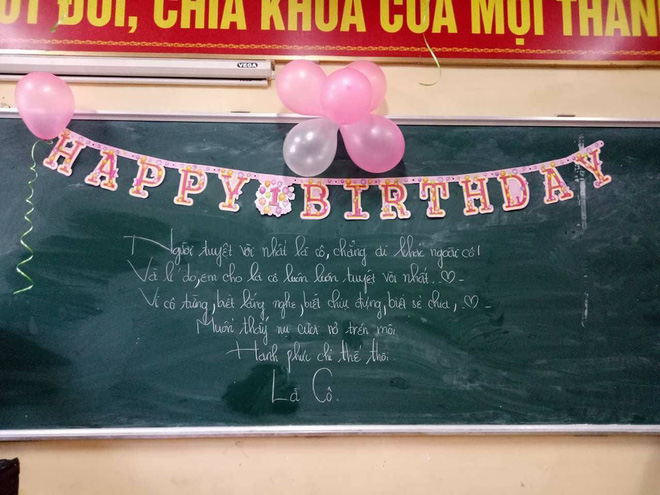 ỐT ĐỜI, CHÌA KHÓA CỦA MỌI THÀN
VEGA
HAPPY 1 BIRTHDAY
Người tuyệt vời nhất là cô, chẳng ai khác ngoài cô!
Và lí do, em cho là cô luôn luôn tuyệt vời nhất..♡-
Vì cô từng, biết lắng nghe, biết chịu đựng, biết sẻ chia, ♡-
Muốn thấy nụ cười nở trên môi
Hạnh phúc chỉ thế thôi
Là Cô.